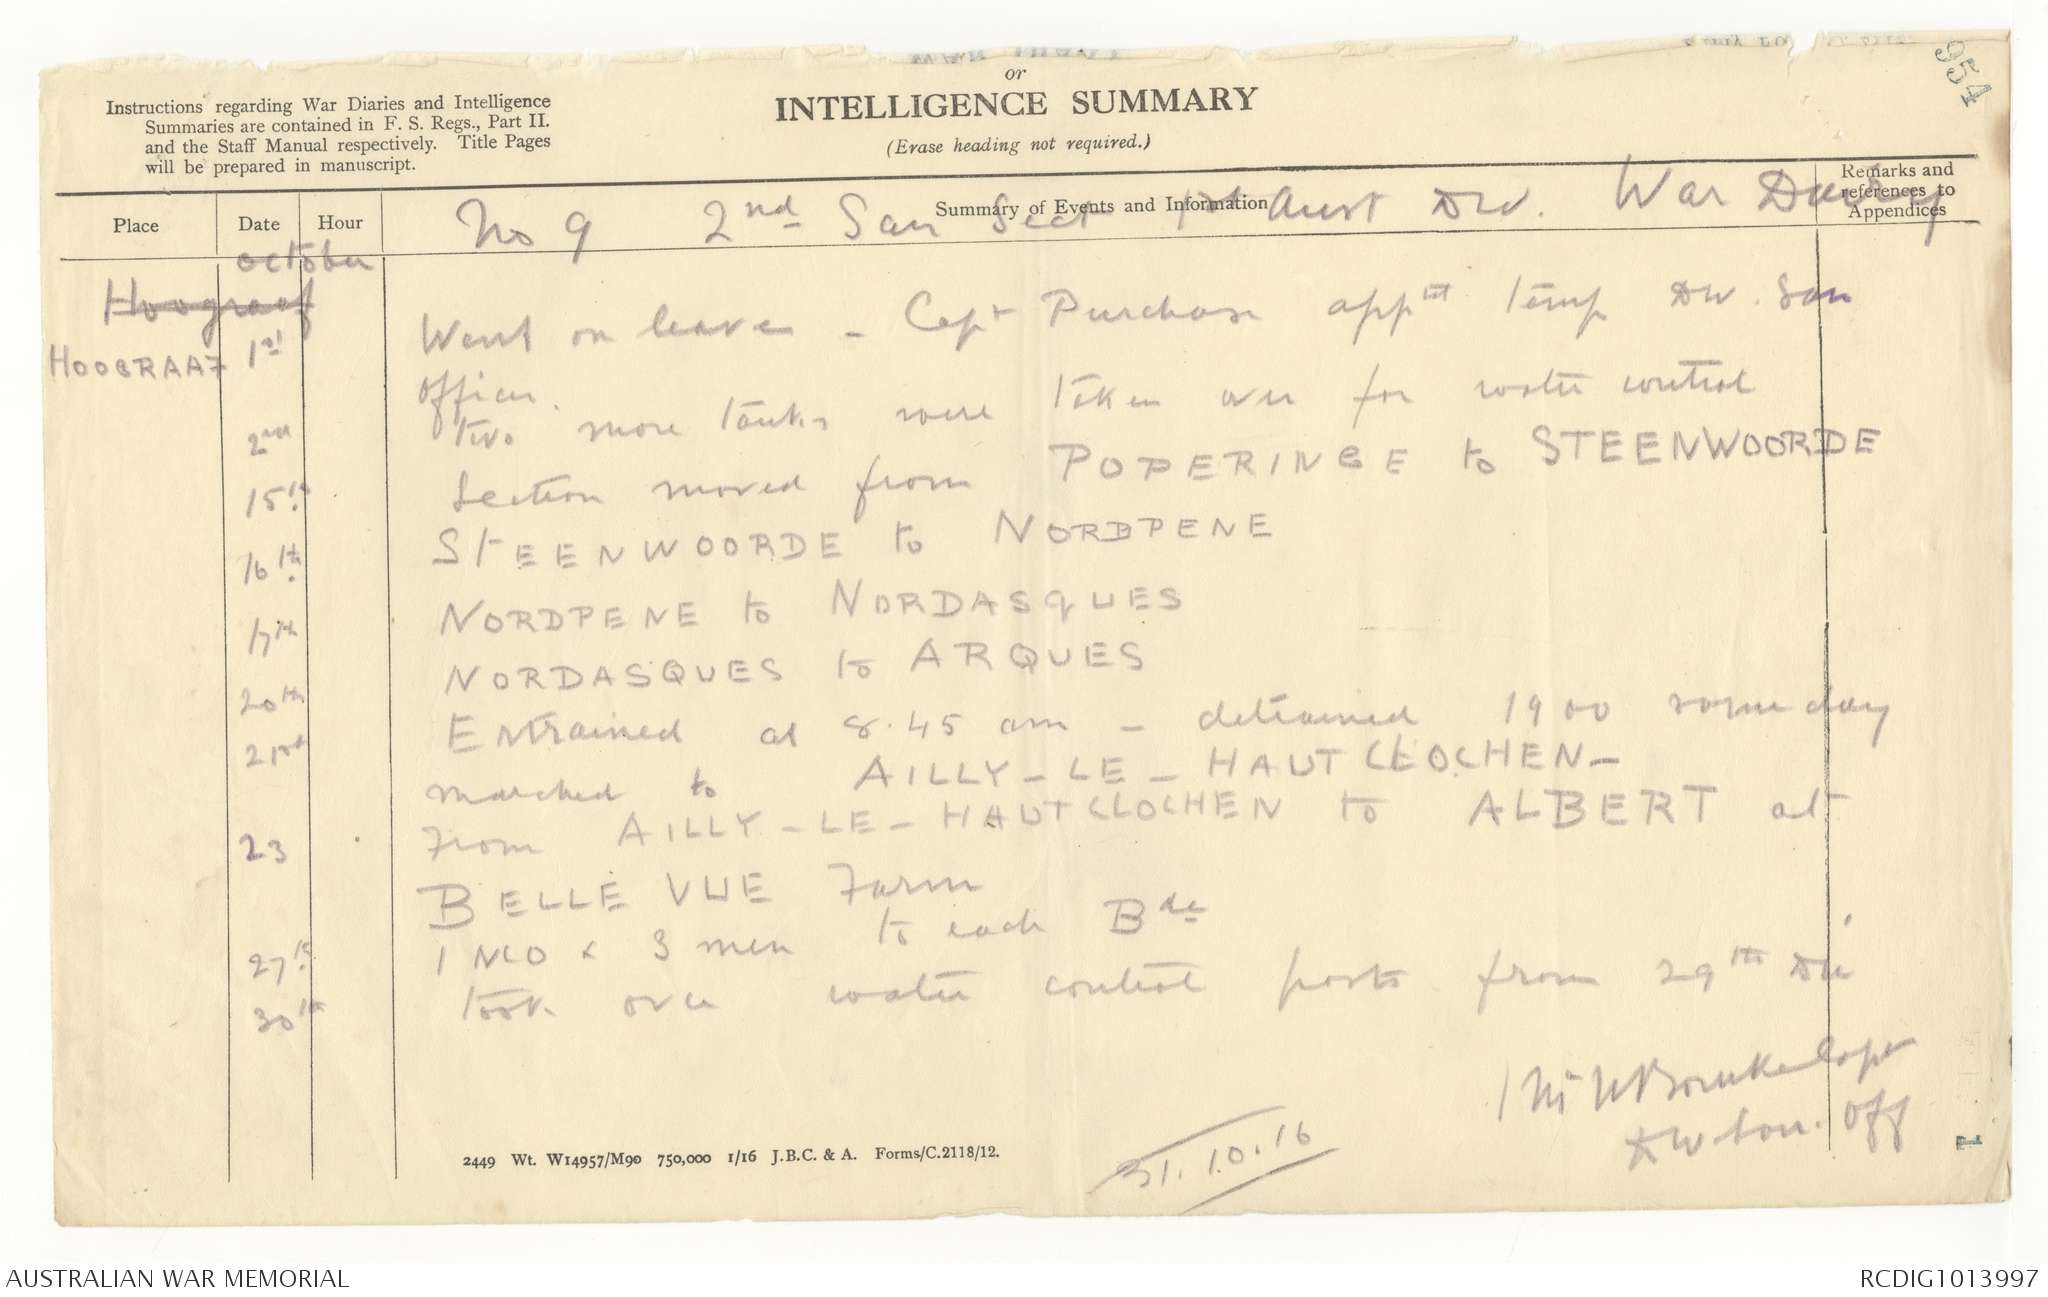 954
or
INTELLIGENCE SUMMARY
(Erase heading not required.)
Instructions regarding War Diaries and Intelligence
Summaries are contained in F. S. Regs., Part II.
and the Staff Manual respectively. Title Pages
will be prepared in manuscript.
Place Date Hour Summary of Events and Information Remarks and
references to
Appendices
No 9 2nd San Sect 1st Aust Div. War Diary
October
Hoograaf
HOOGRAAF 1st Went on leave - Capt Purchase appnt temp Div. San
Officer.
2nd Two more tanks were taken over for water control
15th Section moved from POPERINGE to STEENWOORDE
16th STEENWOORDE to NORDPENE
17th NORDPENE to NORDASQUES
20th NORDASQUES to ARQUES
21st Entrained at 8.45 am - detrained 1900 same day
marched to AILLY-LE-HAUT CLOCHEN-
23 From AILLY-LE-HAUT CLOCHEN to ALBERT at
BELLE VUE Farm
27th 1 NCO & 3 men to each Bde
30th Took over water control posts from 29th Div
Bourke Capt
Div San. Off
31.10.16
2449 Wt. W14957/M90 750,000 1/16 J.B.C. & A. Forms/C.2118/12.
1
AUSTRALIAN WAR MEMORIAL
RCDIG1013997